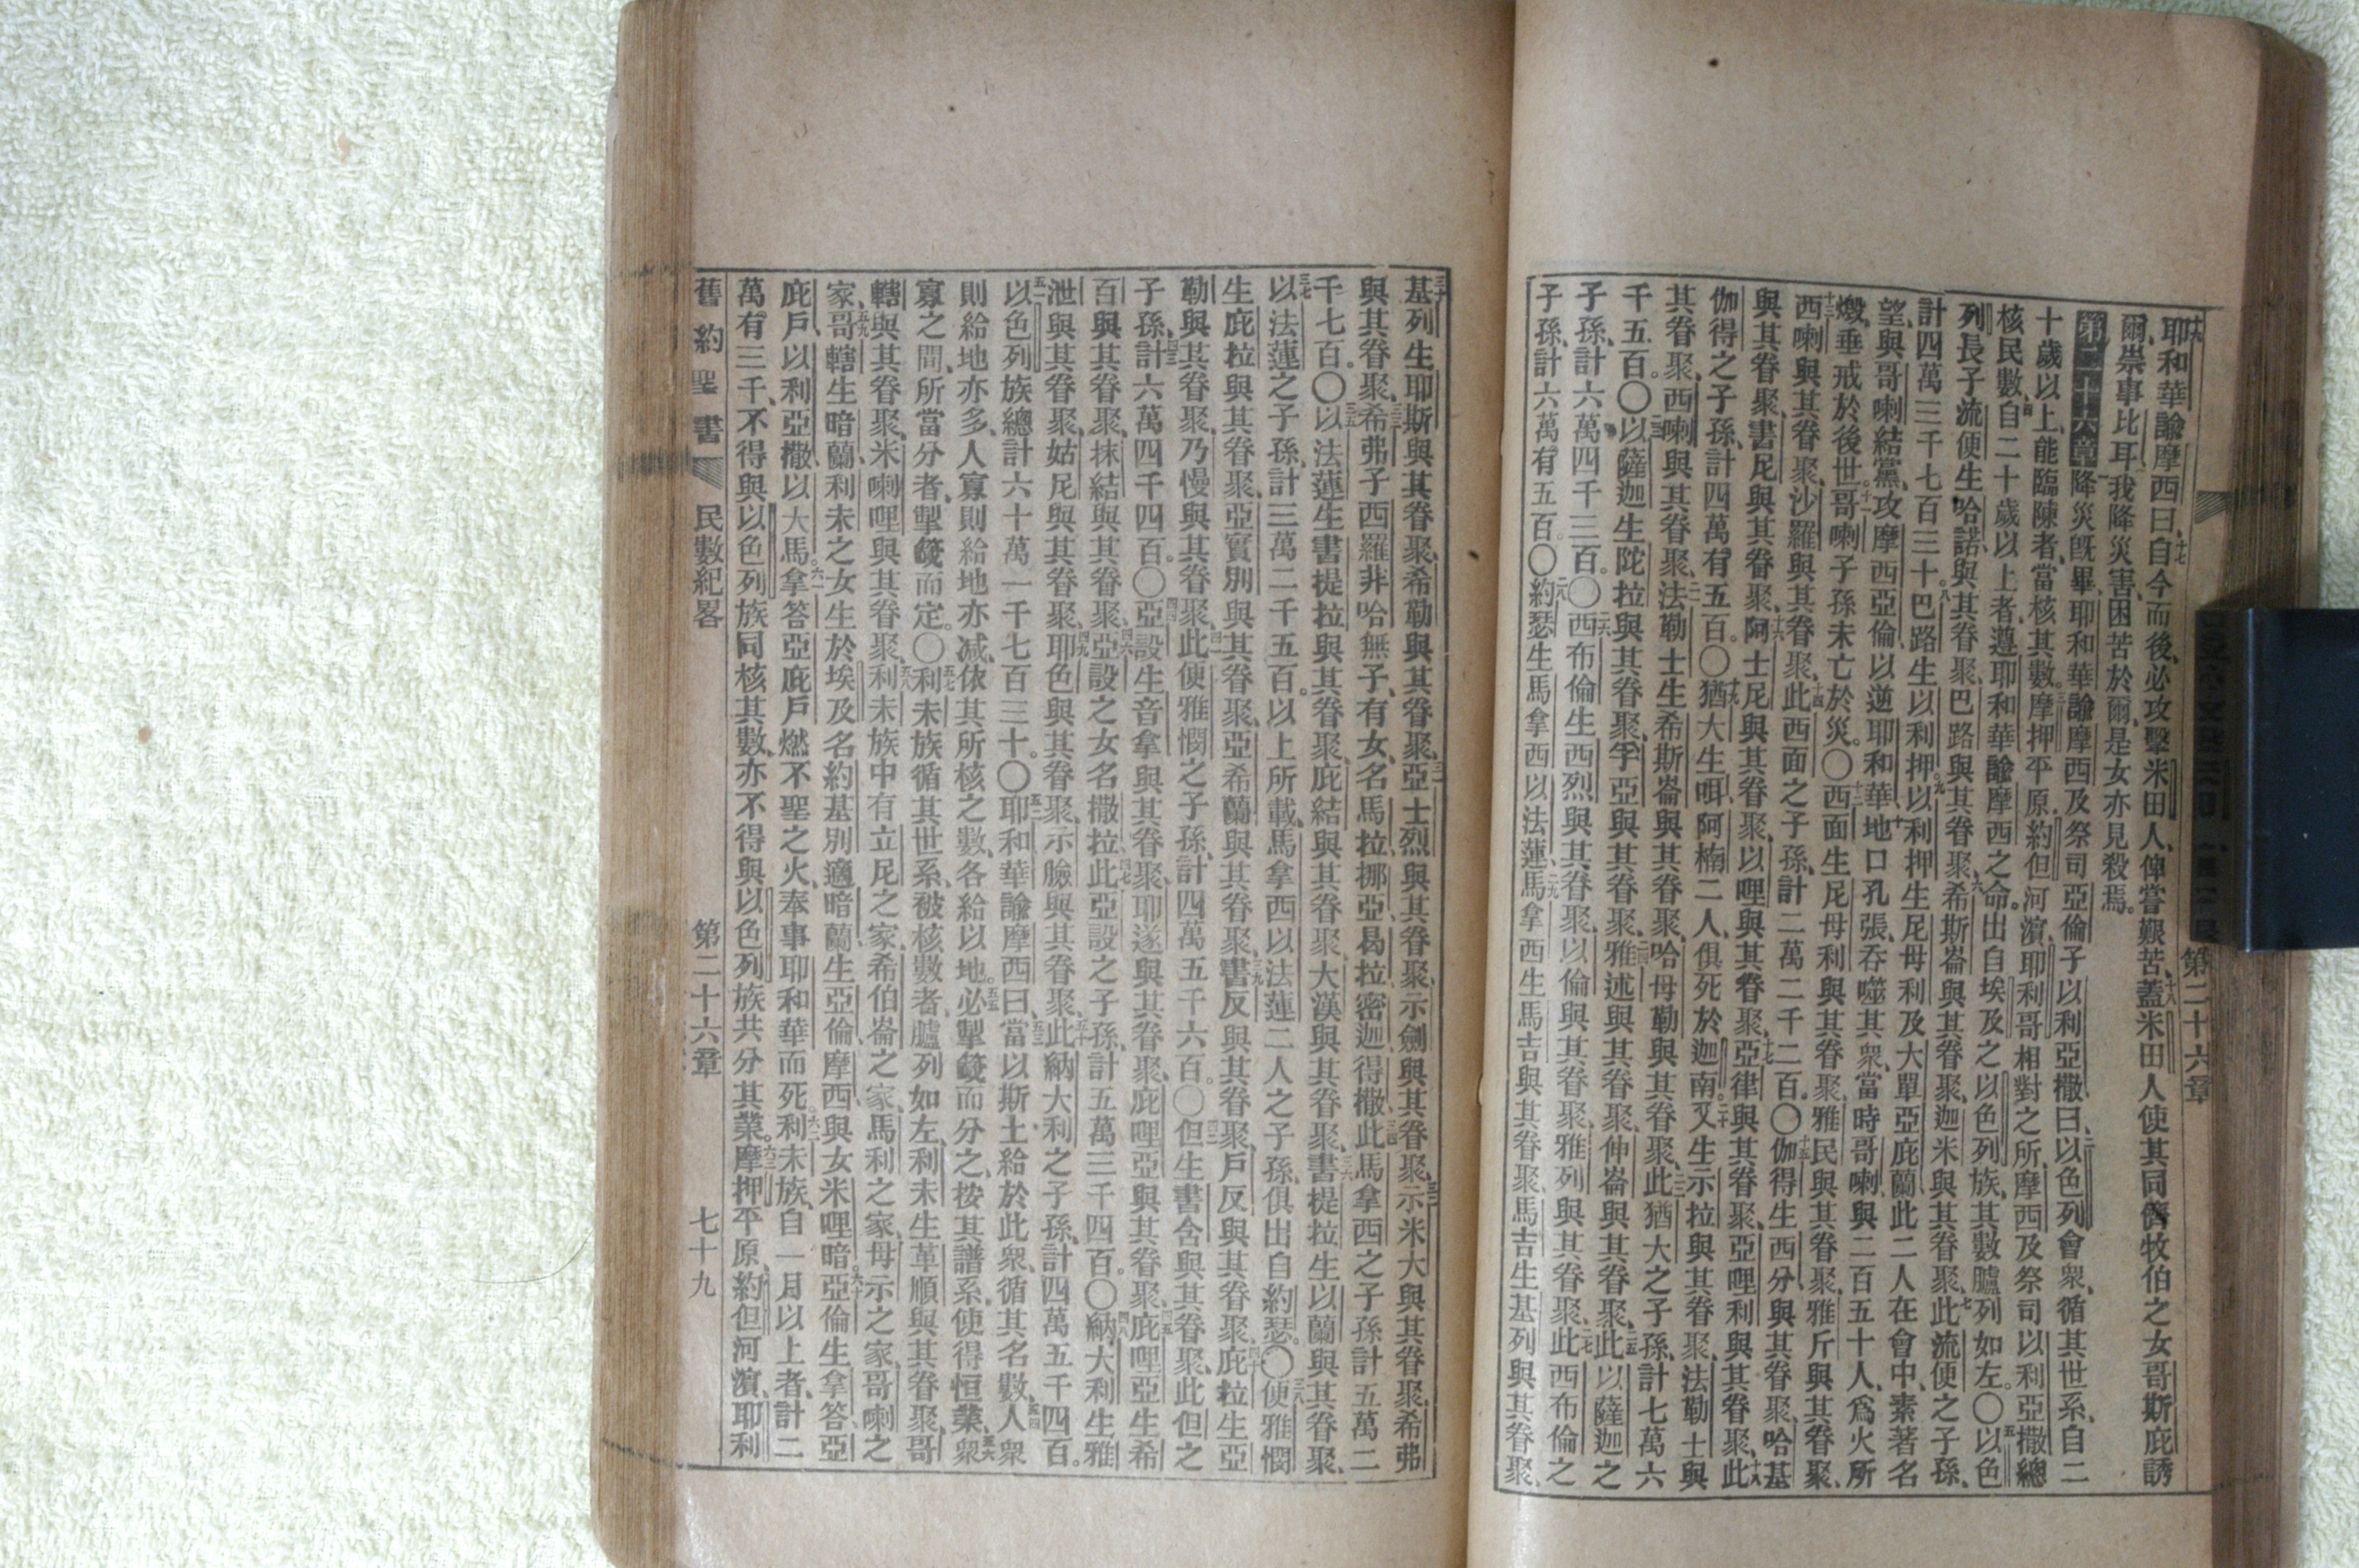 耶和華諭摩西曰、自今而後、必攻擊米田人、俾嘗艱苦、蓋米田人使其同儕牧伯之女哥斯庇誘
爾、崇事比耳、我降災害、困苦於爾、是女亦見殺焉。
第二十六章 降災旣畢、耶和華諭摩西及祭司亞倫子以利亞撒曰、以色列會衆、循其世系、自二
十歲以上、能臨陳者、當核其數。摩押平原、約但河濱、耶利哥相對之所、摩西及祭司以利亞撒總
核民數、自二十歲以上者、遵耶和華諭摩西之命。出自埃及之以色列族、其數臚列如左。〇以色
列長子流便生哈諾、與其眷聚、巴路與其眷聚、希斯崙與其眷聚、迦米與其眷聚、此流便之子孫、
計四萬三千七百三十。巴路生以利押。以利押生尼母利及大單亞庇蘭、此二人在會中、素著名
望、與哥喇結黨、攻摩西亞倫、以逆耶和華、地口孔張、吞噬其衆、當時哥喇與二百五十人、爲火所
燬、垂戒於後世。哥喇子孫未亡於災。〇西面生尼母利與其眷聚、雅民與其眷聚、雅斤與其眷聚、
西喇與其眷聚、沙羅與其眷聚、此西面之子孫、計二萬二千二百。〇伽得生西分與其眷聚、哈基
與其眷聚、書尼與其眷聚、阿士尼與其眷聚、以哩與其眷聚、亞律與其眷聚、亞哩利與其眷聚、此
伽得之子孫、計四萬有五百。〇猶大生咡、阿楠二人、俱死於迦南。又生示拉與其眷聚、法勒士與
其眷聚、西喇與其眷聚、法勒士生希斯崙與其眷聚、哈母勒與其眷聚、此猶大之子孫、計七萬六
千五百。〇以薩迦生陀拉與其眷聚、孚亞與其眷聚、雅述與其眷聚、伸崙與其眷聚、此以薩迦之
子孫、計六萬四千三百。〇西布倫生西烈與其眷聚、以倫與其眷聚、雅列與其眷聚、此西布倫之
子孫、計六萬有五百。〇約瑟生馬拿西以法蓮、馬拿西生馬吉與其眷聚、馬吉生基列與其眷聚、
第二十六章
基列生耶斯與其眷聚、希勒與其眷聚、亞士烈與其眷聚、示劍與其眷聚、示米大與其眷聚、希弗
與其眷聚、希弗子西羅非哈無子、有女、名馬拉、挪亞、曷拉、密迦、得撒、此馬拿西之子孫、計五萬二
千七百。〇以法蓮生書提拉與其眷聚、庇結與其眷聚、大漢與其眷聚、書提拉生以蘭與其眷聚、
以法蓮之子孫、計三萬二千五百。以上所載、馬拿西以法蓮二人之子孫、俱出自約瑟。〇便雅憫
生庇拉與其眷聚、亞實別與其眷聚、亞希蘭與其眷聚、書反與其眷聚、戶反與其眷聚、庇拉生亞
勒與其眷聚、乃慢與其眷聚、此便雅憫之子孫、計四萬五千六百。〇但生書含與其眷聚、此但之
子孫、計六萬四千四百。〇亞設生音拿與其眷聚、耶遂與其眷聚、庇哩亞與其眷聚、庇哩亞生希
百與其眷聚、抹結與其眷聚、亞設之女名撒拉、此亞設之子孫、計五萬三千四百。〇納大利生雅
泄與其眷聚、姑尼與其眷聚、耶色與其眷聚、示臉與其眷聚、此納大利之子孫、計四萬五千四百。
以色列族總計六十萬一千七百三十。〇耶和華諭摩西曰、當以斯土給於此衆、循其名數、人衆
則給地亦多、人寡則給地亦减、依其所核之數、各給以地。必掣籤而分之、按其譜系、使得恒業、衆
寡之間、所當分者、掣籤而定。〇利未族循其世系、被核數者、臚列如左、利未生革順與其眷聚、哥
轄與其眷聚、米喇哩與其眷聚、利未族中有立尼之家、希伯崙之家、馬利之家、母示之家、哥喇之
家、哥轄生暗蘭、利未之女生於埃及、名約基別、適暗蘭、生亞倫摩西與女米哩暗。亞倫生拿答亞
庇戶以利亞撒、以大馬。拿答亞庇戶燃不聖之火、奉事耶和華而死。利未族、自一月以上者、計二
萬有三千、不得與以色列族同核其數、亦不得與以色列族共分其業。摩押平原、約但河濱、耶利
舊約聖書 民數紀畧 第二十六章 七十九